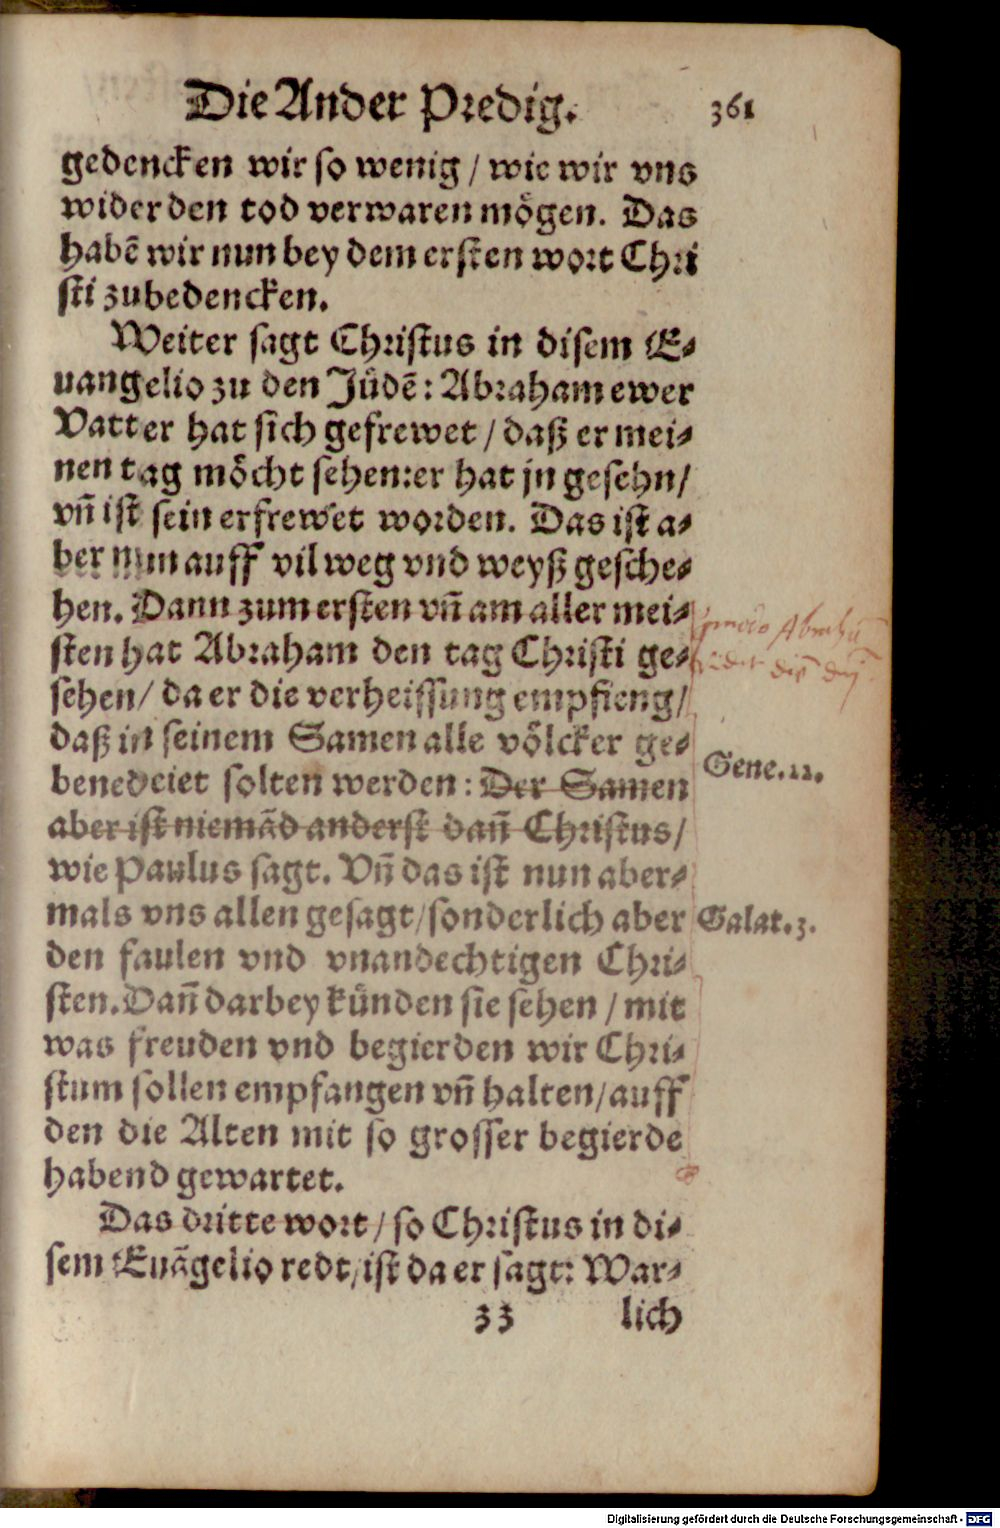 Die Ander Predig. 361
gedencken wir so wenig / wie wir vns
wider den tod verwaren mögen. Das
habē wir nun bey dem ersten wort Chri
sti zubedencken.
Weiter sagt Christus in disem E⸗
uangelio zu den Jüdē: Abraham ewer
Vatter hat sich gefrewet / daß er mei⸗
nen tag möcht sehen: er hat jn gesehn /
vñ ist sein erfrewet worden. Das ist a⸗
ber nun auff vil weg vnd weyß gesche⸗
hen. Dann zum ersten vñ am aller mei⸗
sten hat Abraham den tag Christi ge⸗
sehen / da er die verheissung empfieng /
daß in seinem Samen alle völcker ge⸗
benedeiet solten werden: Der Samen
Gene. 22.
aber ist niemād anderst dañ Christus /
wie Paulus sagt. Vñ das ist nun aber⸗
mals vns allen gesagt / sonderlich aber
Galat. 3.
den faulen vnd vnandechtigen Chri⸗
sten. Dañ darbey künden sie sehen / mit
was freuden vnd begierden wir Chri⸗
stum sollen empfangen vñ halten / auff
den die Alten mit so grosser begierde
habend gewartet.
Das dritte wort / so Christus in di⸗
sem Euāgelio redt / ist da er sagt: War⸗
zz lich
Digitalisierung gefördert durch die Deutsche Forschungsgemeinschaft - DFG